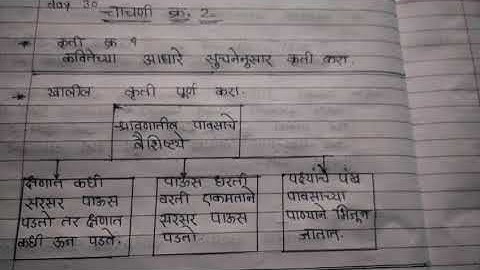 Day 30
चाचणी क्र. 2
* कृती क्र १
कवितेच्या आधारे सुचनेनुसार कृती करा.
* खालील कृती पूर्ण करा.
श्रावणातील पावसाचे
वैशिष्ट्ये
क्षणात कधी
सरसर पाऊस
पडतो तर क्षणात
कधी ऊन पडते.
पाऊस धरती
वरती एकमताने
सरसर पाऊस
पडतो
पक्ष्यांचे पंख
पावसाच्या
पाण्याने भिजून
जातात.